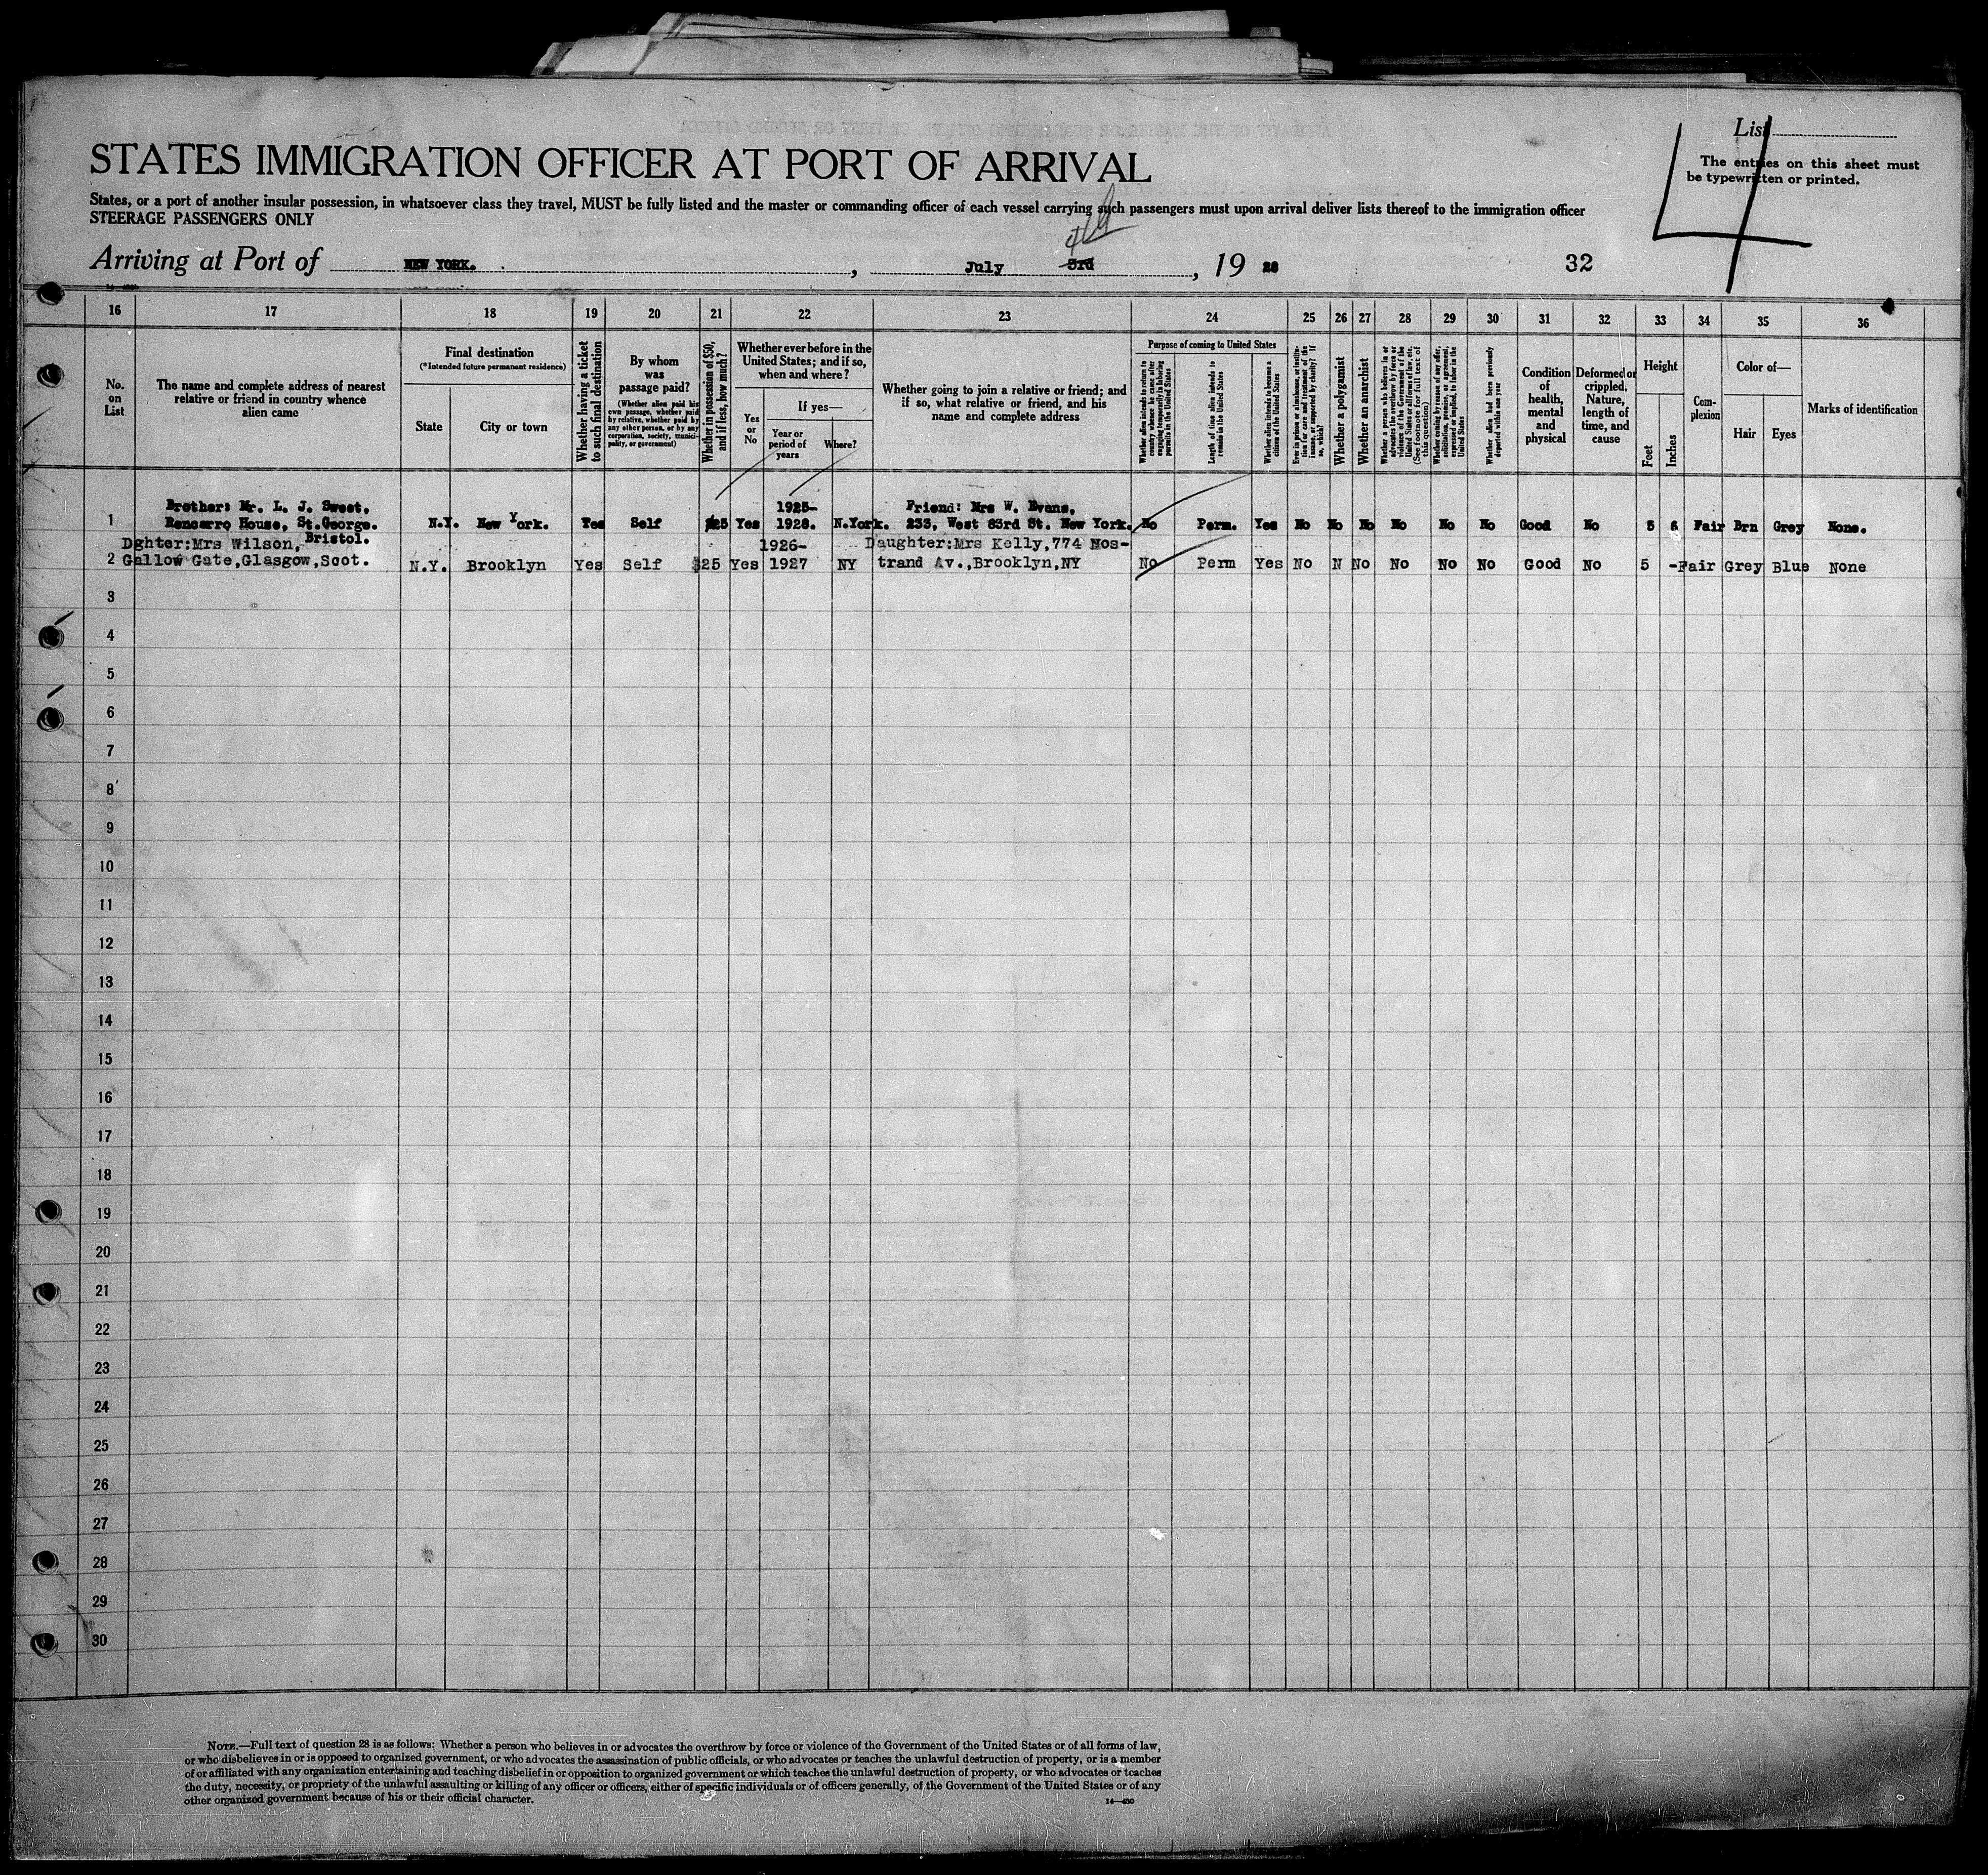 List
The entries on this sheet must
be typewritten or printed.
4
STATES IMMIGRATION OFFICER AT PORT OF ARRIVAL
States, or a port of another insular possession, in whatsoever class they travel, MUST be fully listed and the master or commanding officer of each vessel carrying such passengers must upon arrival deliver lists thereof to the immigration officer
STEERAGE PASSENGERS ONLY
4th
Arriving at Port of NEW YORK. , July 3rd , 19 28 32
16 17 18 19 20 21 22 23 24 25 26 27 28 29 30 31 32 33 34 35 36
No.
on
List
The name and complete address of nearest
relative or friend in country whence
alien came
Final destination
(*Intended future permanent residence)
State
City or town
Whether having a ticket
to such final destination
By whom
was
passage paid?
(Whether alien paid his
own passage, whether paid
by relative, whether paid by
any other person, or by any
corporation, society, munici-
pality, or government)
Whether in possession of $50,
and if less, how much?
Whether ever before in the
United States; and if so,
when and where?
Yes
or
No
If yes—
Year or
period of
years
Where?
Whether going to join a relative or friend; and
if so, what relative or friend, and his
name and complete address
Purpose of coming to United States
Whether alien intends to return to
country whence he came after
engaging temporarily in laboring
pursuits in the United States
Length of time alien intends to
remain in the United States
Whether alien intends to become a
citizen of the United States
Ever in prison or almshouse, or institu-
tion for care and treatment of the
insane, or supported by charity? If
so, which?
Whether a polygamist
Whether an anarchist
Whether a person who believes in or
advocates the overthrow by force or
violence of the Government of the
United States or all forms of law, etc.
(See footnote for full text of
this question)
Whether coming by reason of any offer,
solicitation, promise, or agreement,
expressed or implied, to labor in the
United States
Whether alien had been previously
deported within one year
Condition
of
health,
mental
and
physical
Deformed or
crippled.
Nature,
length of
time, and
cause
Height
Feet
Inches
Com-
plexion
Color of—
Hair
Eyes
Marks of identification
Brother: Mr. L. J. Sweet. 1925- Friend: Mrs W. Evans,
1 House, St.George. N.Y. New York. Yes Self $25 Yes 1928. N.York. 233, West 83rd St. New York. No Perm. Yes No No No No No No Good No 5 6 Fair Brn Grey None.
Bristol.
Dghter:Mrs Wilson, 1926- Daughter:Mrs Kelly,774 Nos-
2 Gallow Gate,Glasgow,Scot. N.Y. Brooklyn Yes Self $25 Yes 1927 NY trand Av.,Brooklyn,NY No Perm Yes No N No No No No Good No 5 - Fair Grey Blue None
3
4
5
6
7
8
9
10
11
12
13
14
15
16
17
18
19
20
21
22
23
24
25
26
27
28
29
30
NOTE.—Full text of question 28 is as follows: Whether a person who believes in or advocates the overthrow by force or violence of the Government of the United States or of all forms of law,
or who disbelieves in or is opposed to organized government, or who advocates the assassination of public officials, or who advocates or teaches the unlawful destruction of property, or is a member
of or affiliated with any organization entertaining and teaching disbelief in or opposition to organized government or which teaches the unlawful destruction of property, or who advocates or teaches
the duty, necessity, or propriety of the unlawful assaulting or killing of any officer or officers, either of specific individuals or of officers generally, of the Government of the United States or of any
other organized government because of his or their official character.
14—430